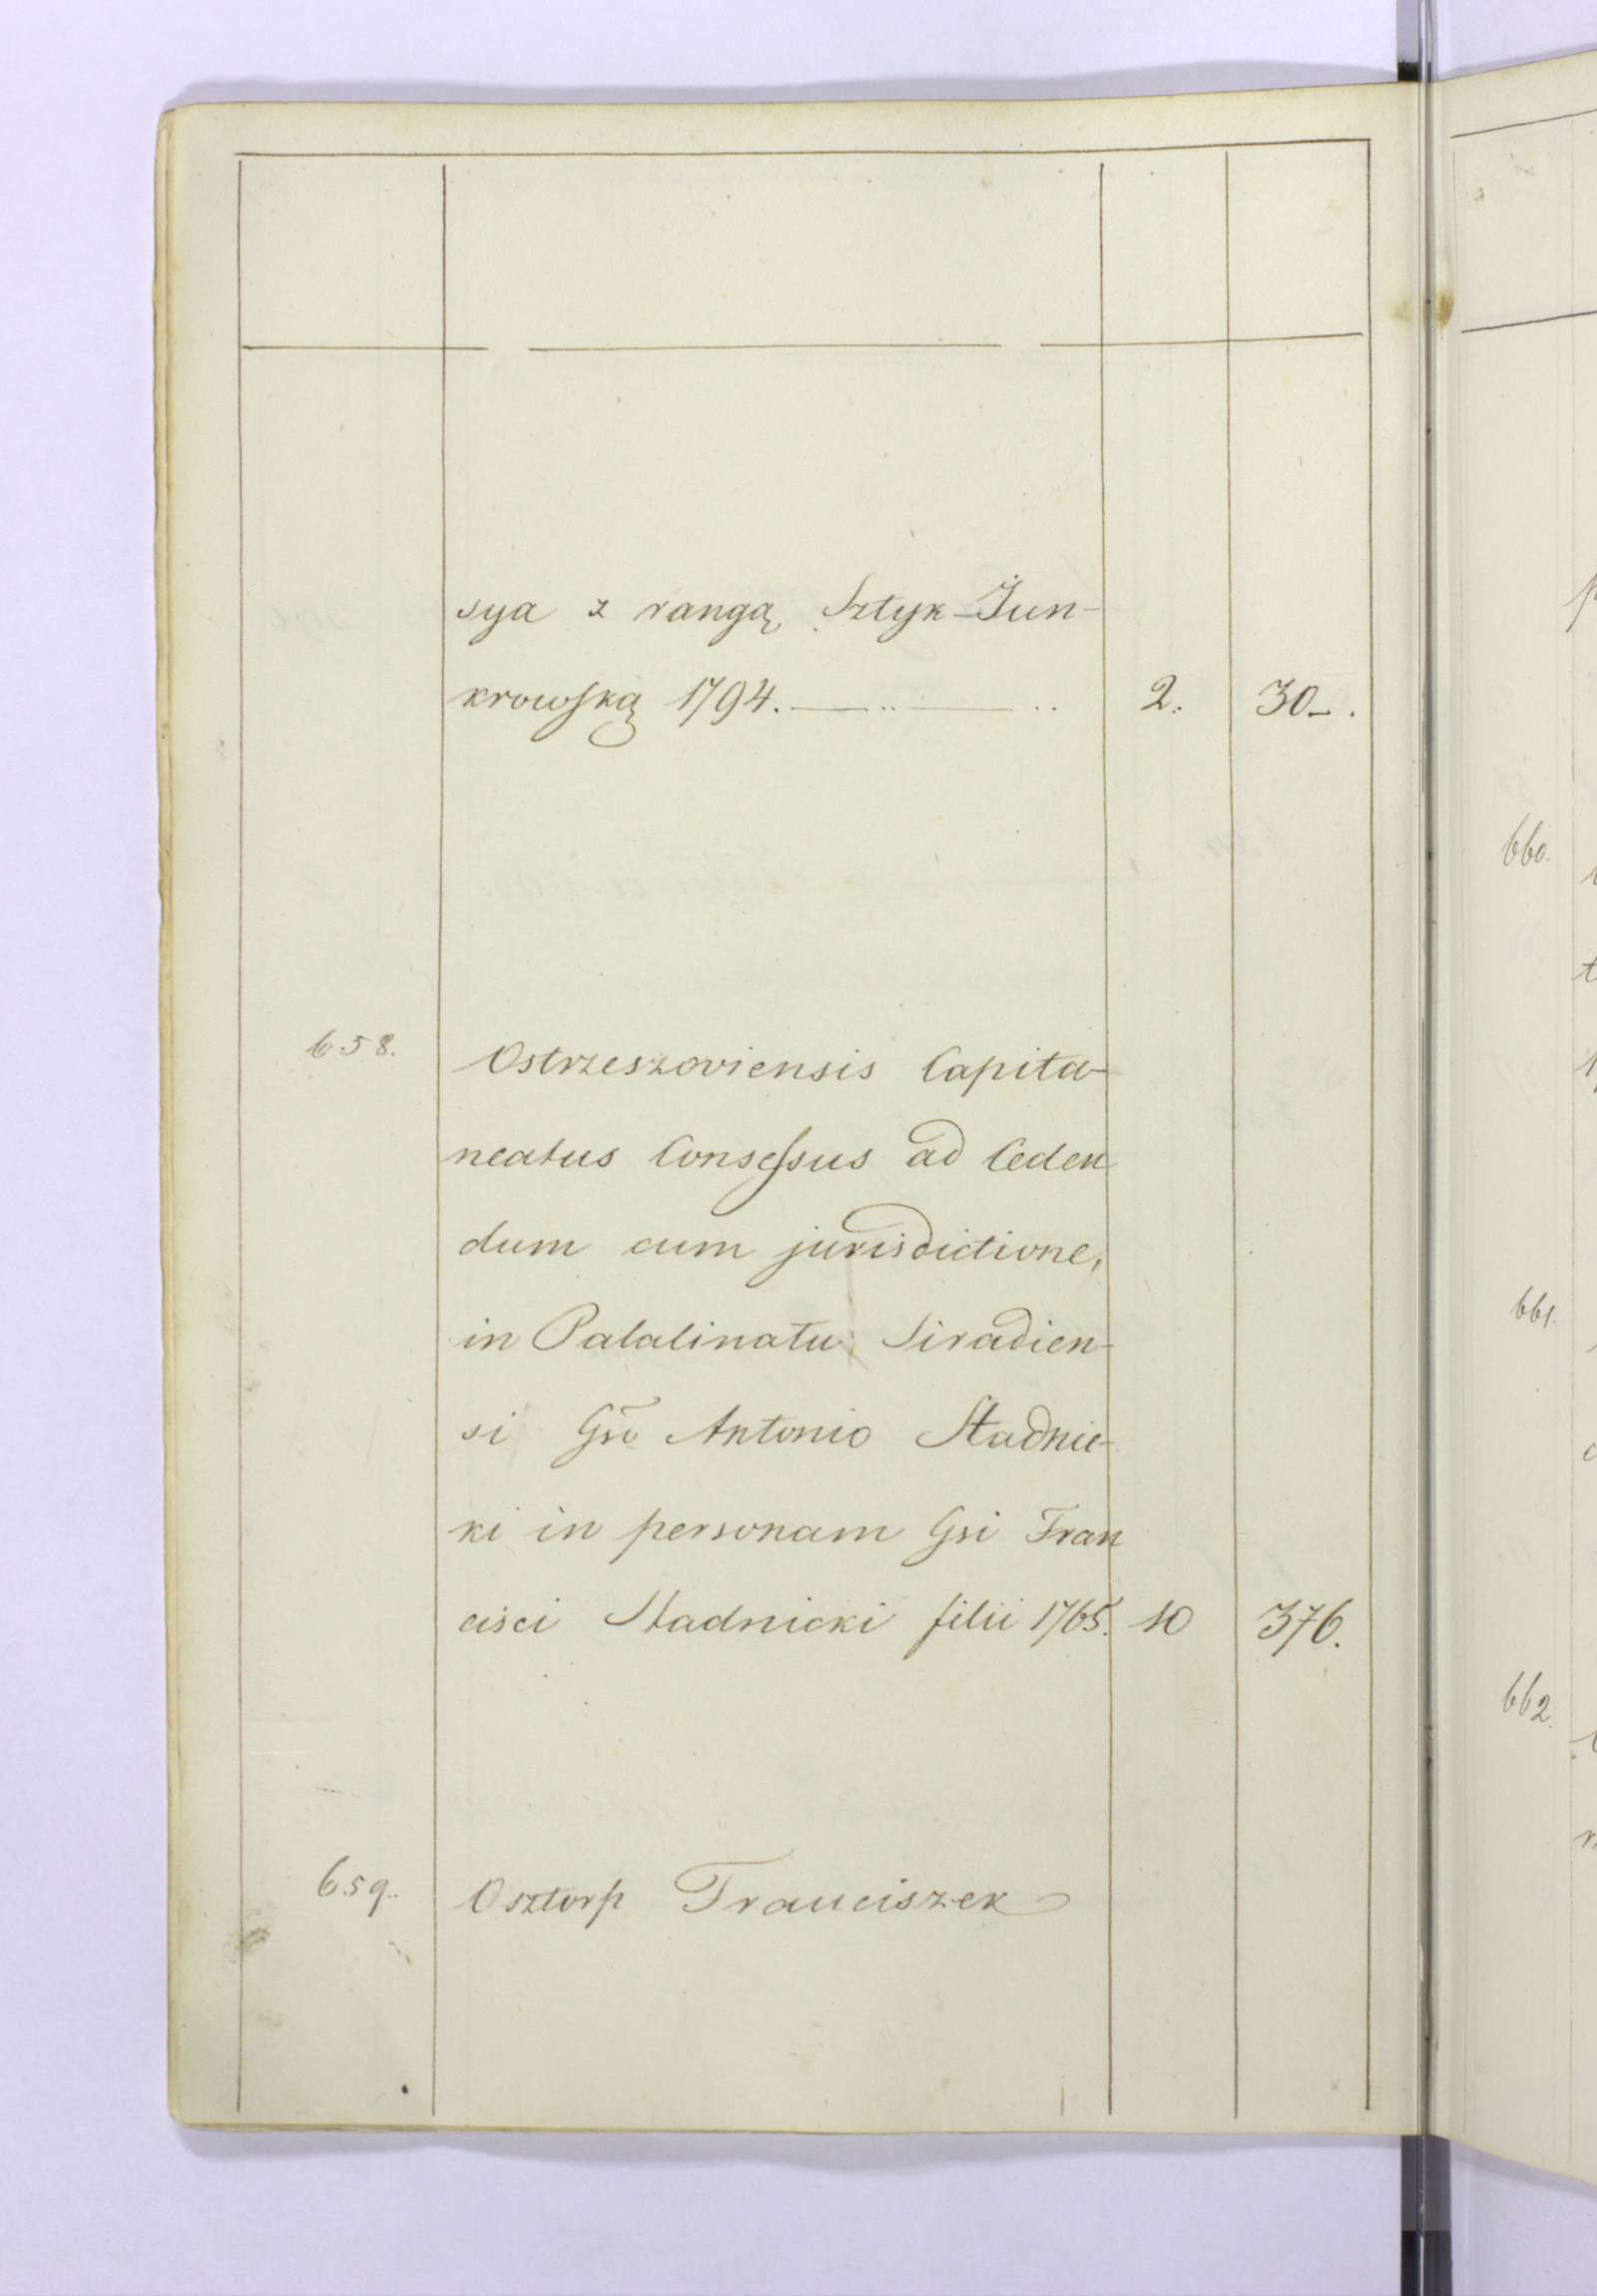 sya z rangą Sztyk-Jun-
krowską 1794. — .. — .. 2. 30-.
658. Ostrzeszoviensis Capita-
neatus Consessus ad Ceden
dum cum jurisdictione,
in Palalinatu Siradien-
si Gso Antonio Stadnic-
ki in personam Gsi Fran
cisci Stadnicki filii 1765. 10 376.
659. Osztorp Franciszek
660.
661.
662.